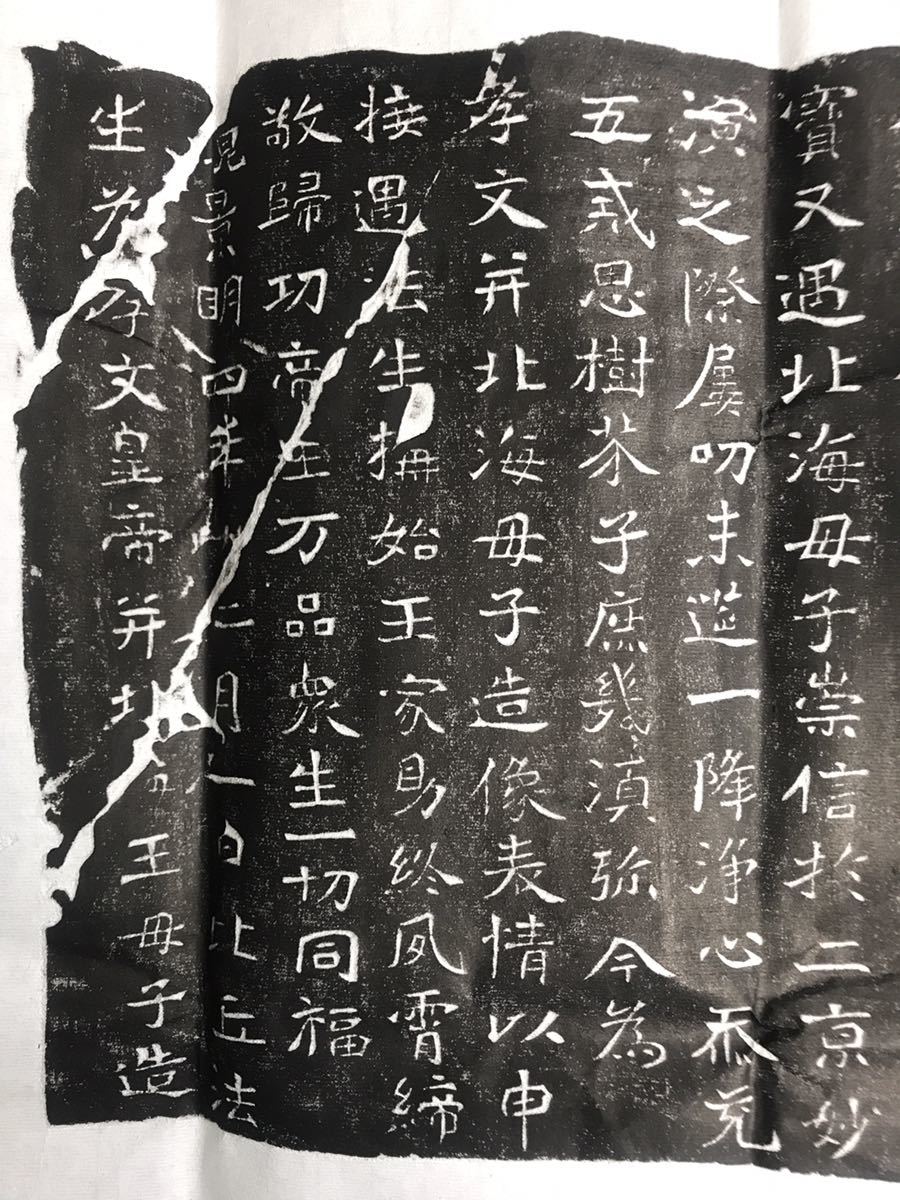 寶又遇北海母子崇信於二京妙
演之際屢叨末筵一降淨心忝充
五戒思樹芥子庶幾湏弥今為
孝文并北海母子造像表情以申
接遇法生搆始王家助終夙霄締
敬歸功帝主万品眾生一切同福
魏景明四年十二月一日比丘法
生為孝文皇帝并北海王母子造